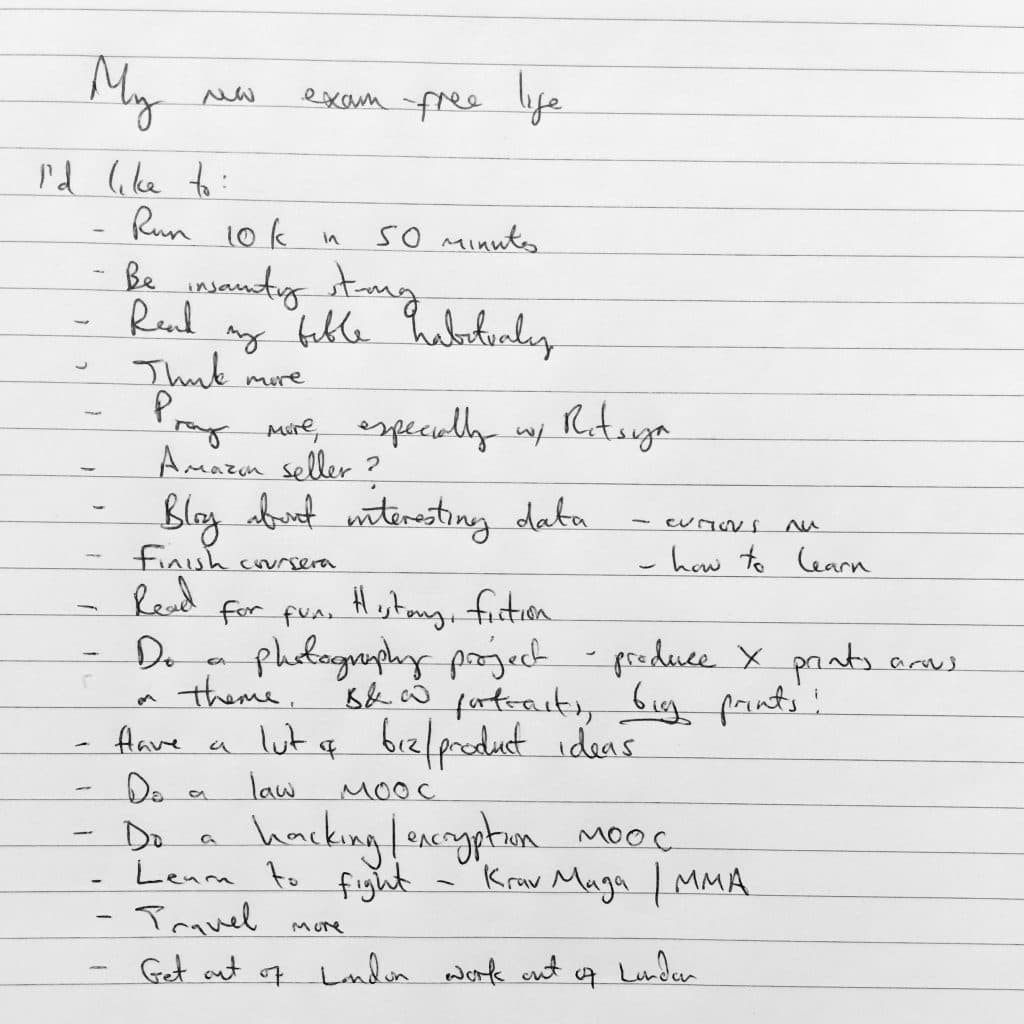 My new exam-free life
I'd like to:
- Run 10k in 50 minutes
- Be insanity strong
- Read my bible habitualy
- Think more
- Pray more, especially w/
- Amazon seller?
- Blog about interesting data - curious
- Finish coursera - how to learn
- Read for fun. History, fiction
- Do a photography project - produce X prints
a theme. B&W portraits, big prints!
- Have a lot of biz/product ideas
- Do a law MOOC
- Do a hacking/encryption MOOC
- Learn to fight - Krav Maga / MMA
- Travel more
- Get out of London work out of London